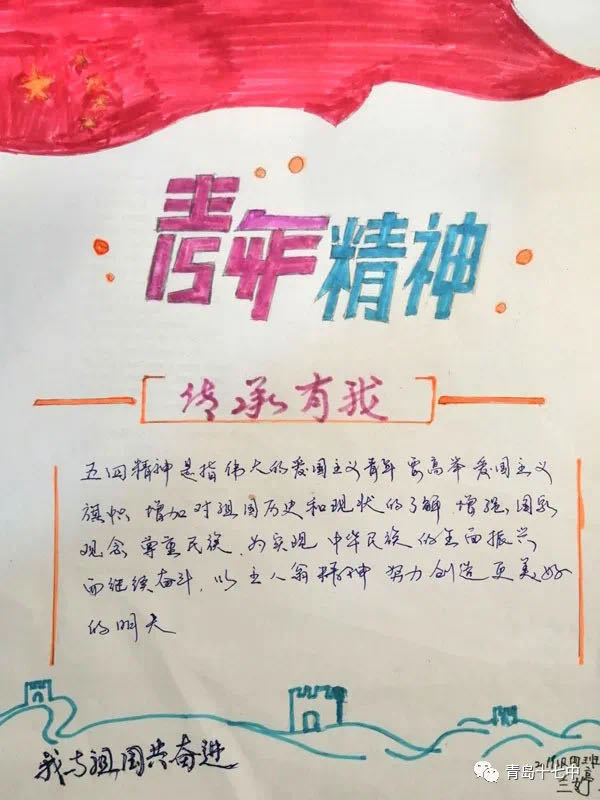 青年精神
传承有我
五四精神是指伟大的爱国主义青年要高举爱国主义
旗帜,增加对祖国历史和现状的了解,增强国家
观念,尊重民族,为实现中华民族的全面振兴
而继续奋斗,以主人翁精神努力创造更美好
的明天
我与祖国共奋进
青岛十七中